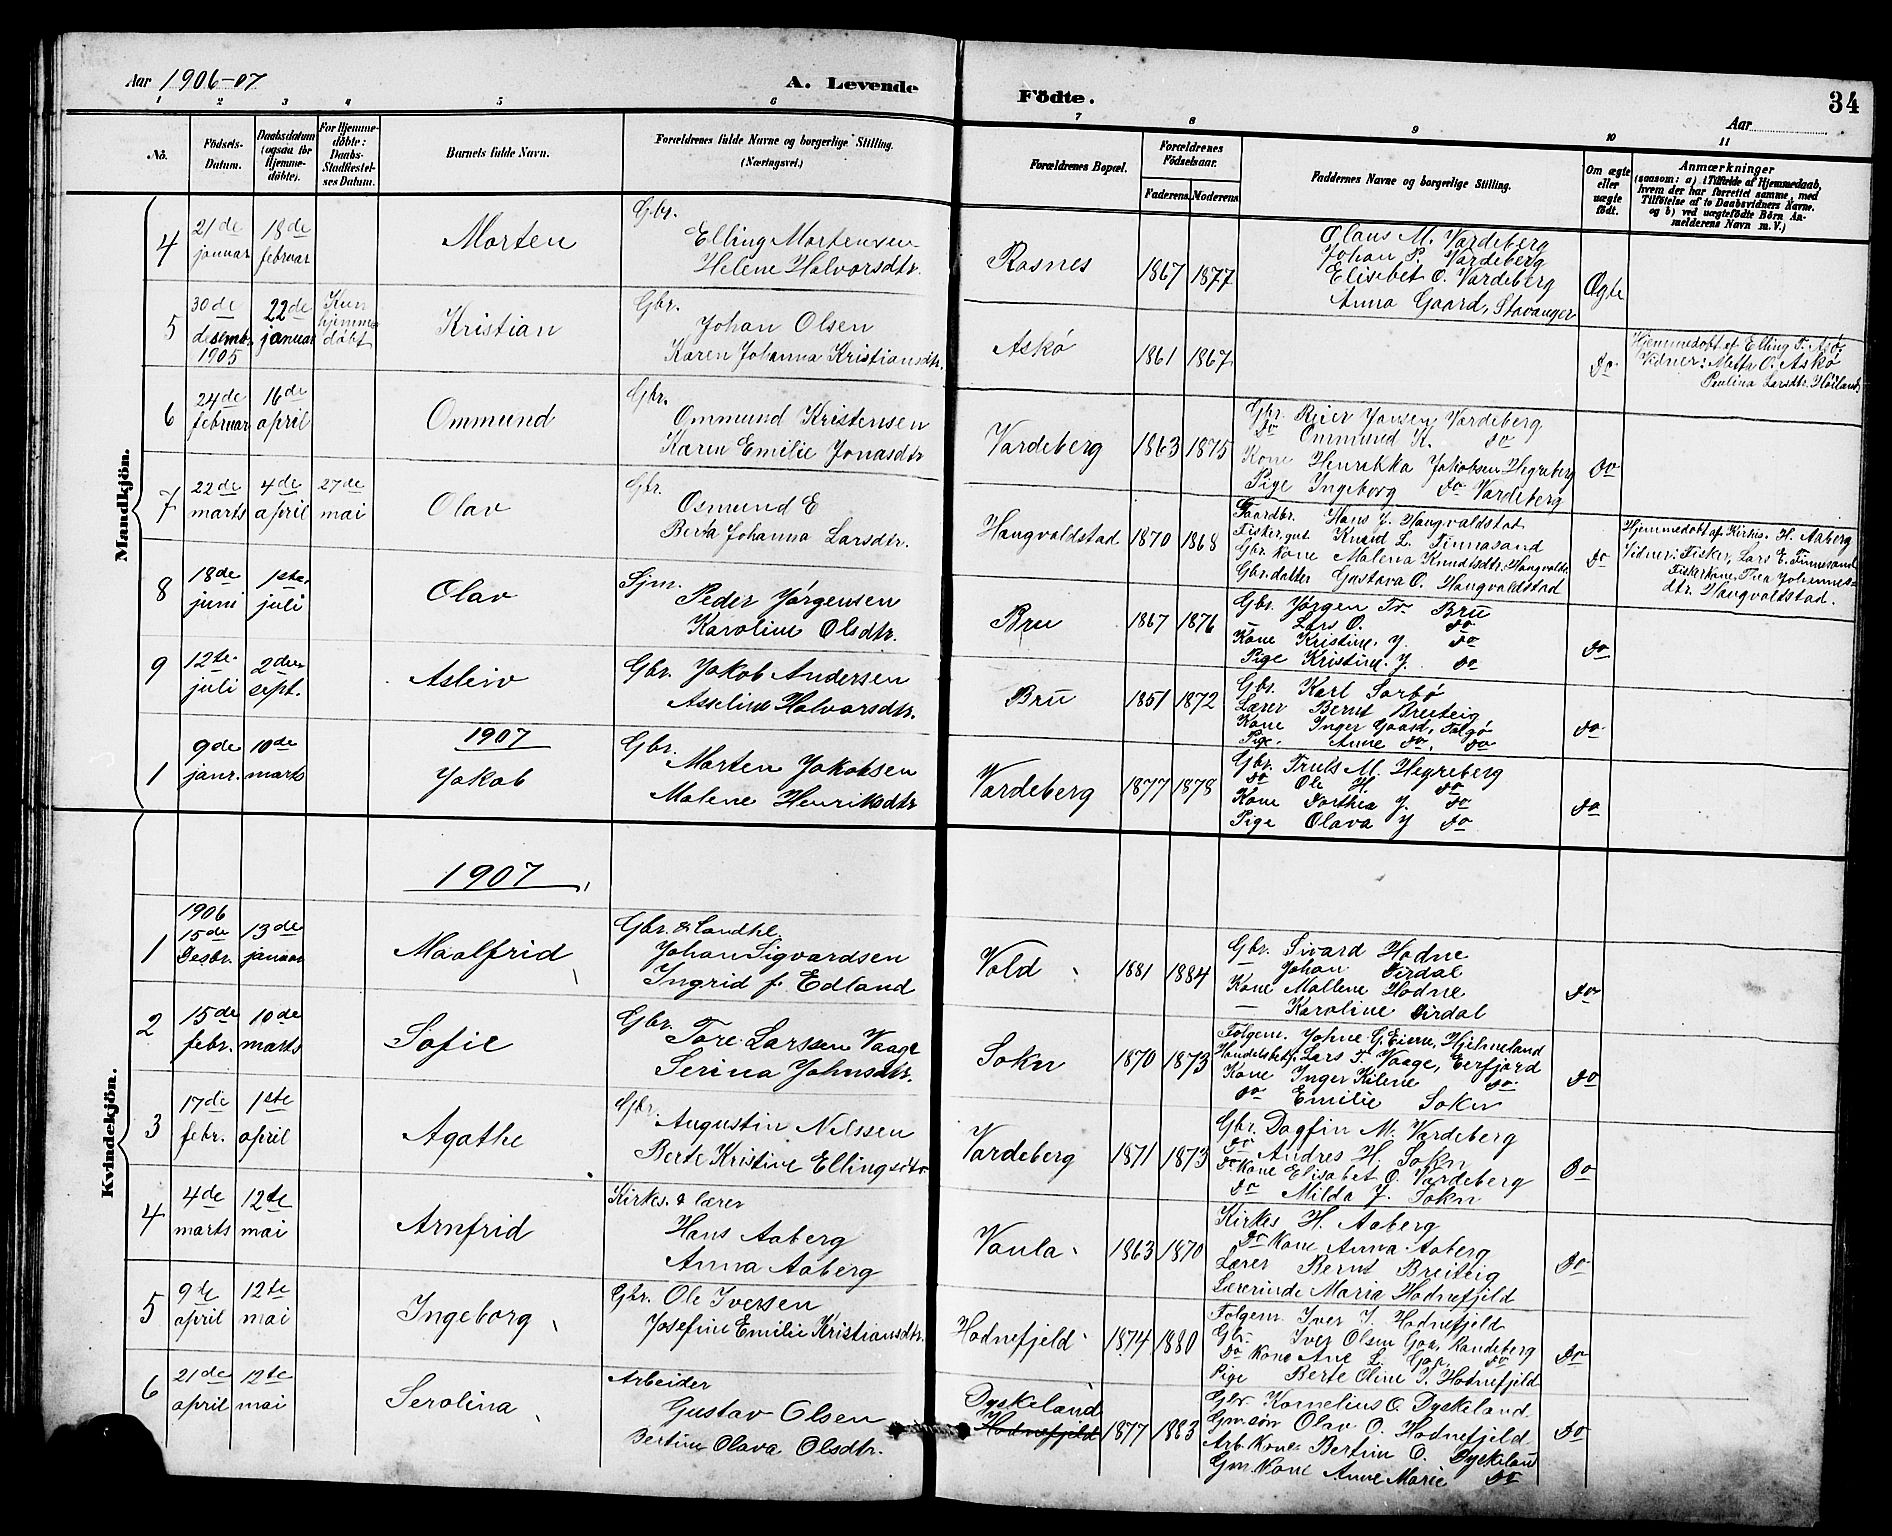 Aar 1906-07
A. Levende Födte.
34
Aar
1 2 3 4 5 6 7 8 9 10 11
No.
Födsels-Datum.
Daabsdatum (ogsaa for Hjemme-döbte).
For Hjemme-döbte: Daabs-Stadfæstel-ses Datum.
Barnets fulde Navn.
Forældrenes fulde Navne og borgerlige Stilling. (Næringsvei.)
Forældrenes Bopæl.
Forældrenes Födselsaar.
Faderens Moderens
Faddernes Navne og borgerlige Stilling.
Om ægte eller uægte födt.
Anmærkninger
(saasom: a) i Tilfælde af Hjemmedaab,
hvem der har forrettet samme, med
Tilföielse af to Daabsvidners Navne.
og b) ved uægtefödte Börn An-
melderens Navn m. V.)
Mandkjön.
4 21de januar 18de februar Morten
Gbr.
Elling Mortensen
Helene Halvorsdtr.
Rosnes 1867 1877
Olaus M. Vardeberg
Johan P. Vardeberg
Elisebet O. Vardeberg
Anna Gaard, Stavanger
Ægte
5 30de desembr. 1905 22de januar Kun hjemme döbt Kristian
Gbr.
Johan Olsen
Karen Johanna Kristiansdtr.
Askø 1861 1867 do
Hjemmedøbt af Elling T. Askø
Vidner: Mette O. Askø
Paulina Larsdtr.
6 24de februar 16de april Ommund
Gbr.
Ommund Kristensen
Karen Emilie Jonasdtr
Vardeberg 1863 1875
Gbr. Reier Jonsen Vardeberg
do Ommund K. do
Kone Henrikka Jakobsen Hegreberg
Pige Ingeborg do Vardeberg
do
7 22de marts 4de april 27de mai Olav
Gbr.
Osmund E
Berta Johanna Larsdtr.
Haugvaldstad 1870 1868
Gaardbr. Hans J. Haugvaldstad
Fiskergut Knud L. Finnasand
Gbr. Kone Malena Knudtsdtr. Haugvaldst.
Gbr. datter Gustava O. Haugvaldstad
do
Hjemmedøbt af Kirkes. H. Aaberg
Vidner: Fisker, Lars E. Finnesand
Fiskerkone, Thea Johannes-
dtr. Haugvaldstad.
8 18de juni 1ste juli Olav
Sjm.
Peder Jørgensen
Karoline Olsdtr.
Bru 1867 1876
Gbr. Jørgen Tr. Bru
— Lars O. do
Kone Kristine J do
Pige Kristine J. do
do
9 12te juli 2den sept. Asleiv
Gbr. Jakob Andersen
Asseline Halvorsdtr.
Bru 1851 1872
Gbr. Karl Sørbø
Lærer Bernt Breiteig
Kone Inger Gaard, Talgø
Pige. Anne do. do
do
1907
1 9de janr. 10de marts Jakob
Gbr.
Morten Jakobsen
Malene Henriksdtr
Vardeberg 1877 1878
Gbr. Truls M. Hegreberg
do Ole H. do
Kone Dorthea J. do
Pige Olava J do
do
Kvindekjön.
1907
1 1906 15de Desbr. 13de januar Maalfrid
Gbr. & Landhl.
Johan Sigvardsen
Ingrid f. Edland
Vold 1881 1884
Gbr. Sivard Hodne
— Johan Dirdal
Kone Mallene Hodne
— Karoline Dirdal
do
2 15de febr. 10de marts Sofie
Gbr.
Tore Larssen Vaage
Serina Johnsdtr.
Sokn 1870 1873
Følgem. Johne G. Eime, Hjelmeland
Handelsbetj. Lars T. Vaage, Eerfjord
Kone Inger Kilene do.
do Emilie Sokn
do
3 17de febr. 1ste april Agathe
Gbr.
Augustin Nilssen
Berte Kristine Ellingsdtr
Vardeberg 1871 1873
Gbr. Dagfin M. Vardeberg
do Andres H. Sokn
do Kone Elisabet O. Vardeberg
do Milda J. Sokn
do
4 4de marts 12te mai Arnfrid
Kirkes. & lærer
Hans Aaberg
Anna Aaberg
Vaula 1863 1870
Kirkes H. Aaberg
do Kone Anna Aaberg
Lærer Bernt Breiteig
Lærerinde Maria Hodnefjeld
do
5 9de april 12te mai Ingeborg
Gbr. Ole Iversen
Josefine Emilie Kristiansdtr.
Hodnefjeld 1874 1880
Følgem. Iver I. Hodnefjeld
Gbr. Iver Olsen Goa, Randeberg
do Kone Ane L. Goa, do
Pige Berte Oline I. Hodnefjeld
do
6 21de april 12te mai Serolina
Arbeider
Gustav Olsen
Bertine Olava Olsdtr.
Dyskeland
Hodnefjeld 1877 1883
Gbr. Kornelius O. Dyskeland
Gm. søn Olav O. Hodnefjeld
Arb. Kone Bertine O. Dyskeland
Gm. Kone Anne Marie do
do